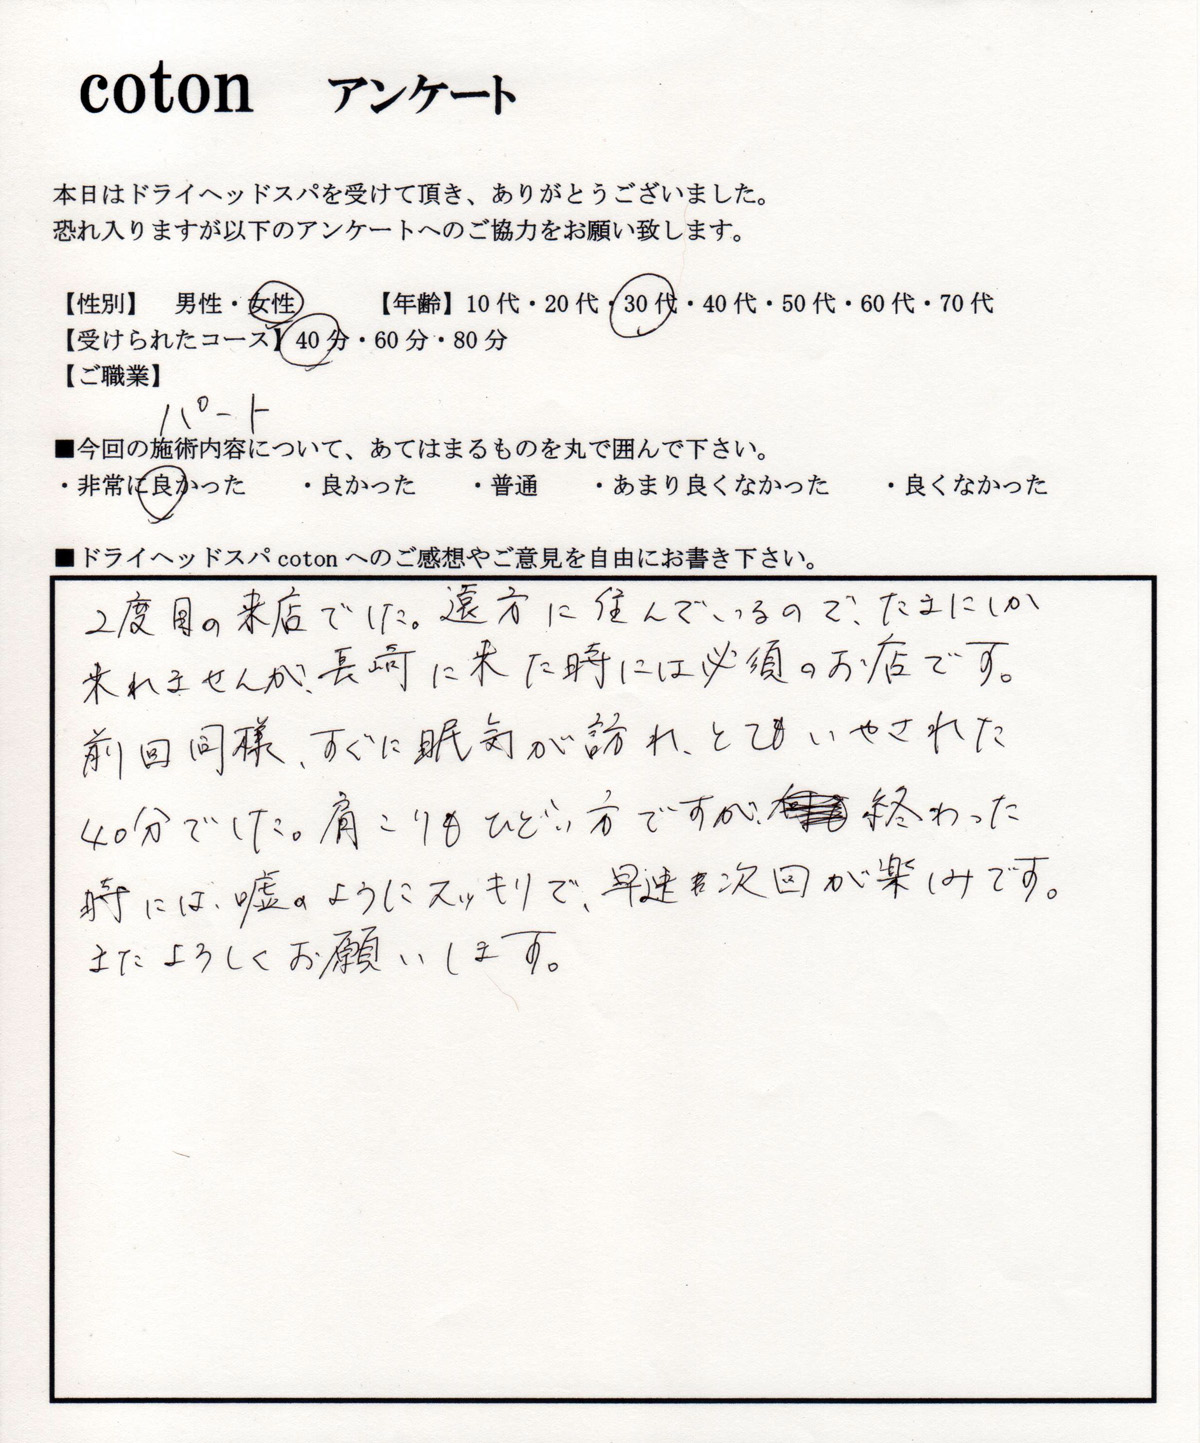 coton アンケート
本日はドライヘッドスパを受けて頂き、ありがとうございました。
恐れ入りますが以下のアンケートへのご協力をお願い致します。
【性別】 男性・女性 【年齢】10代・20代・30代・40代・50代・60代・70代
【受けられたコース】40分・60分・80分
【ご職業】
パート
■今回の施術内容について、あてはまるものを丸で囲んで下さい。
・非常に良かった ・良かった ・普通 ・あまり良くなかった ・良くなかった
■ドライヘッドスパcotonへのご感想やご意見を自由にお書き下さい。
2度目の来店でした。遠方に住んでいるので、たまにしか
来れませんが、長崎に来た時には必須のお店です。
前回同様、すぐに眠気が訪れ、とてもいやされた
40分でした。肩こりもひどい方ですが、終わった
時には、嘘のようにスッキリで、早速次回が楽しみです。
またよろしくお願いします。